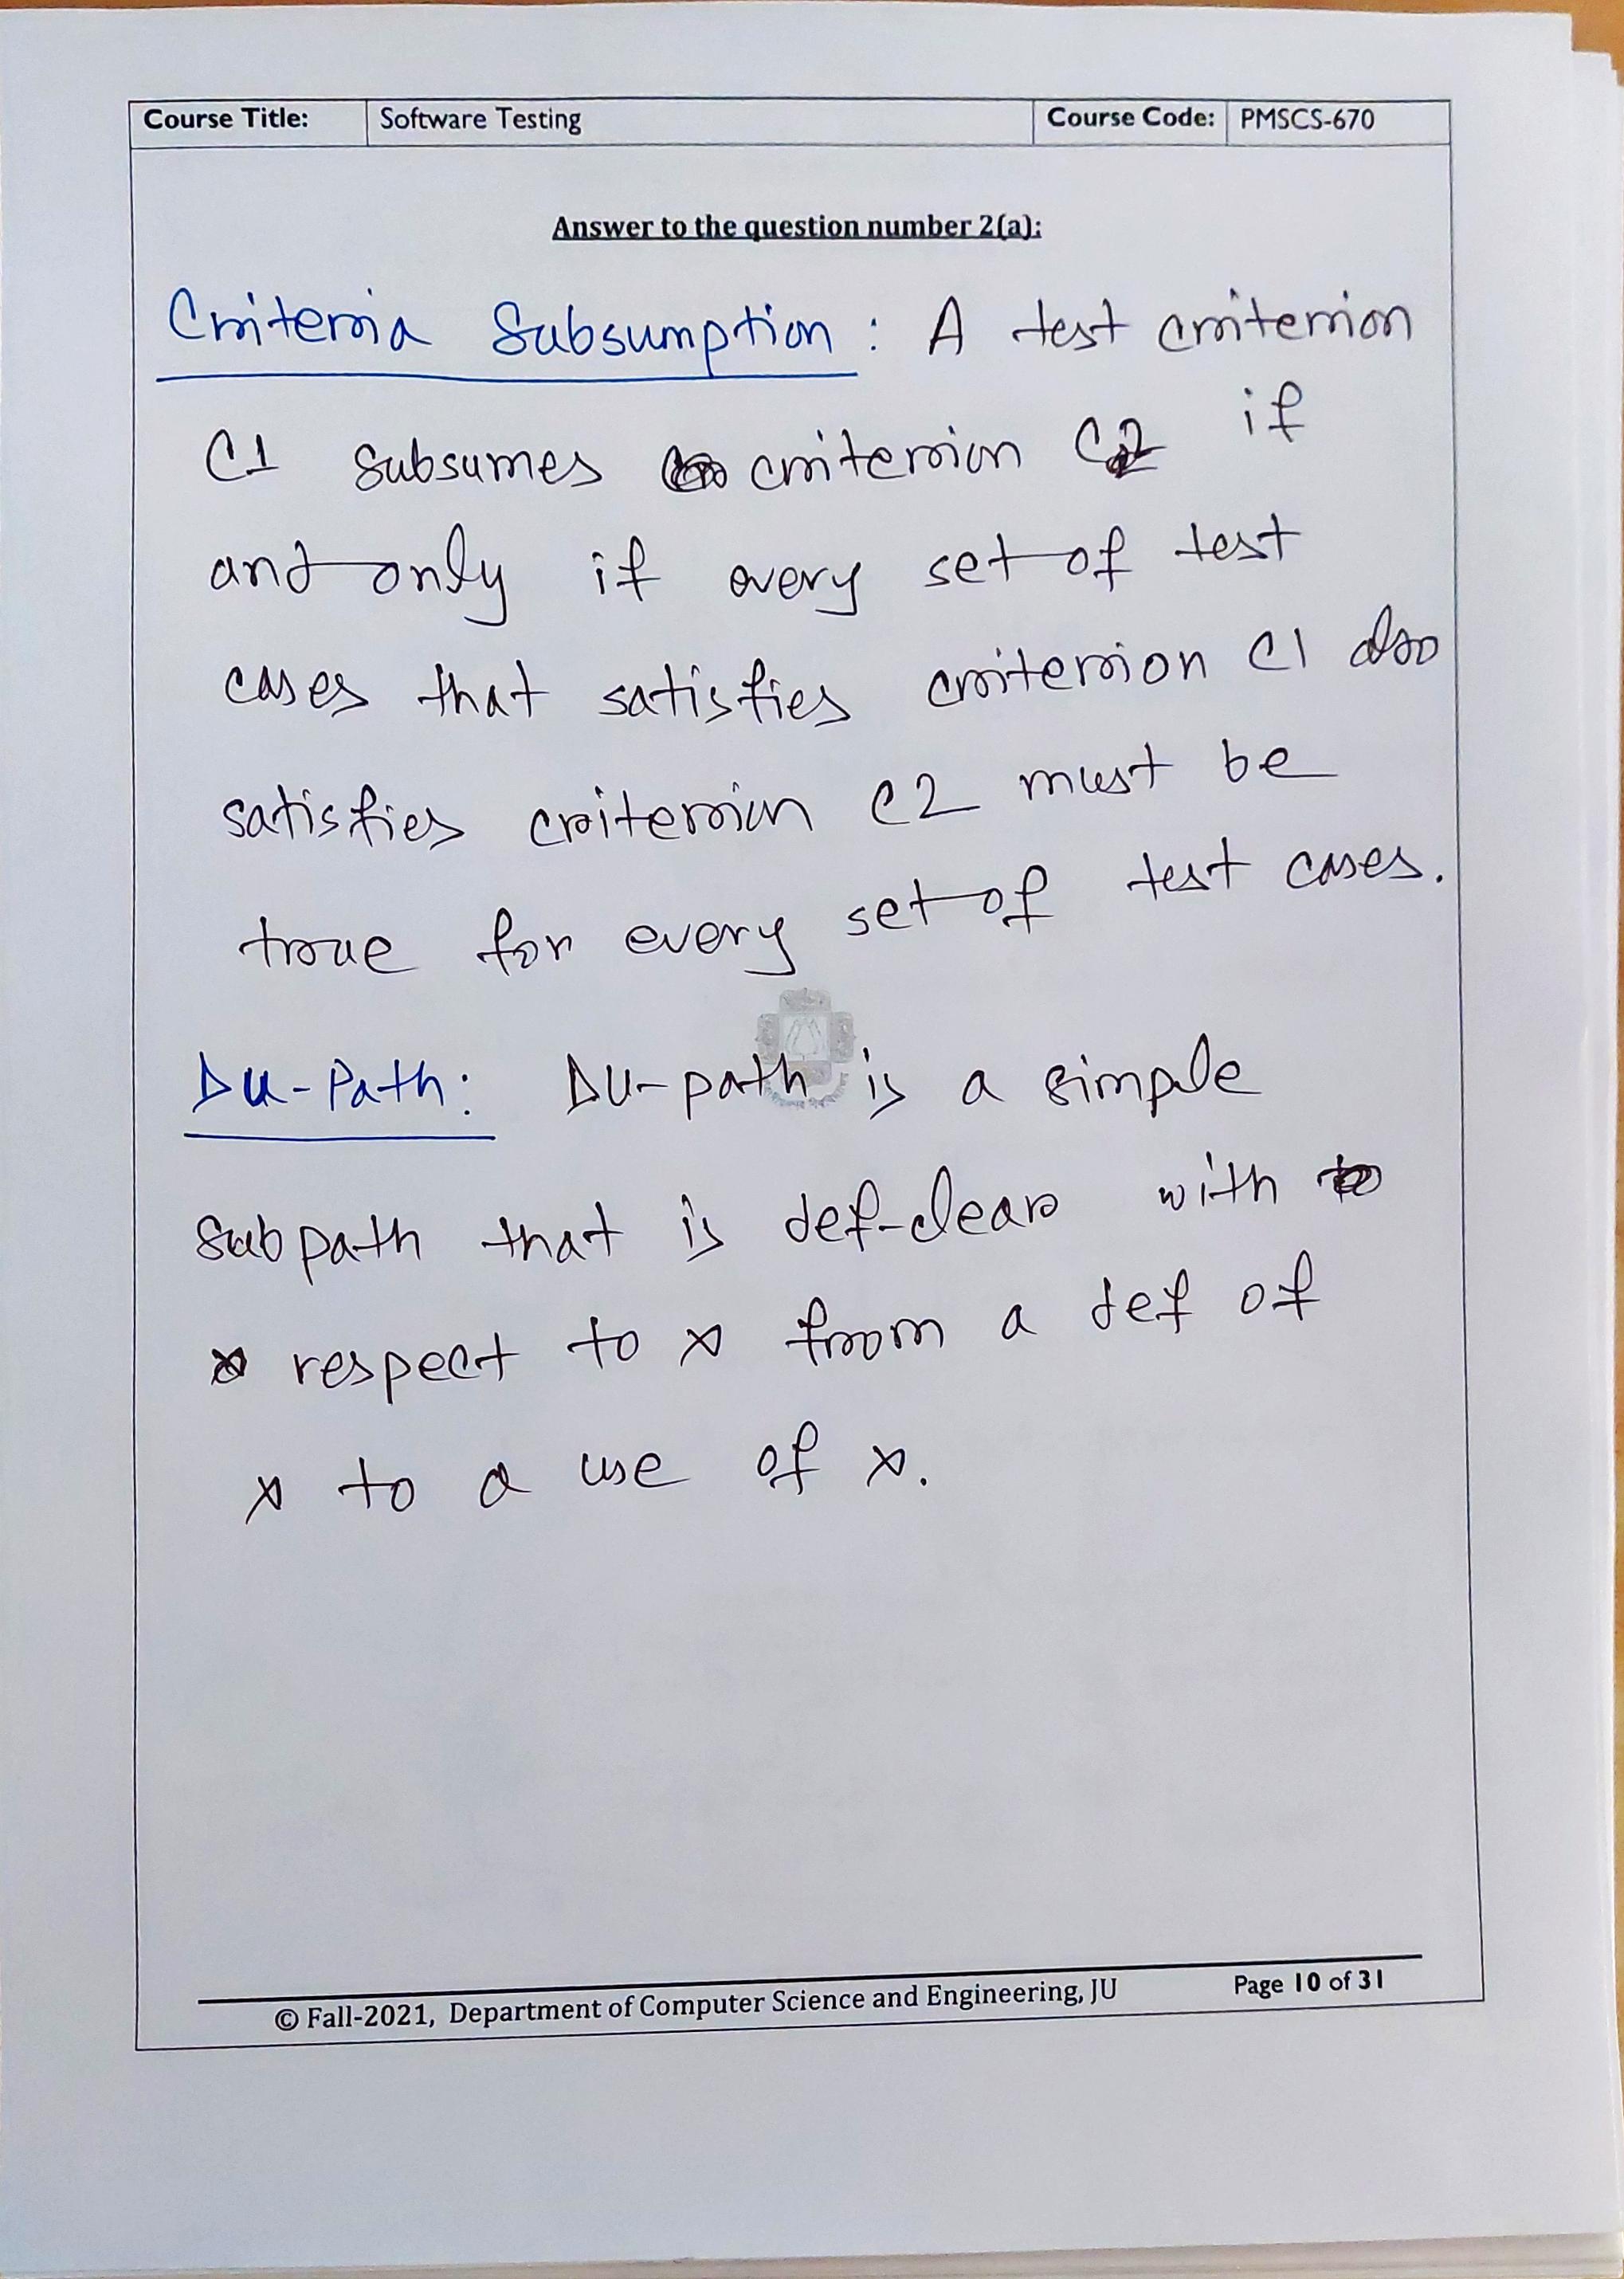 Course Title: Software Testing Course Code: PMSCS-670
Answer to the question number 2(a):
Criteria Subsumption : A test criterion
C1 subsumes criterion C2 if
and only if every set of test
cases that satisfies criterion C1 also
satisfies criterion C2 must be
true for every set of test cases.
Du-Path: DU-path is a simple
subpath that is def-clear with
respect to x from a def of
x to a use of x.
© Fall-2021, Department of Computer Science and Engineering, JU Page 10 of 31